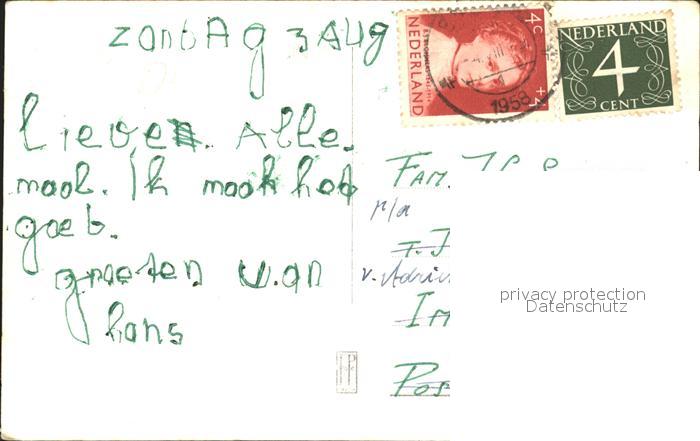 zontAg 3 Aug
Lieve. Alle.
maal. Ik maak het
goet.
groeten van
hans
4c
+4
NEDERLAND
1958
NEDERLAND
4
CENT
FAM.
p/a
T.J
v.
IM
Pos
privacy protection
Datenschutz